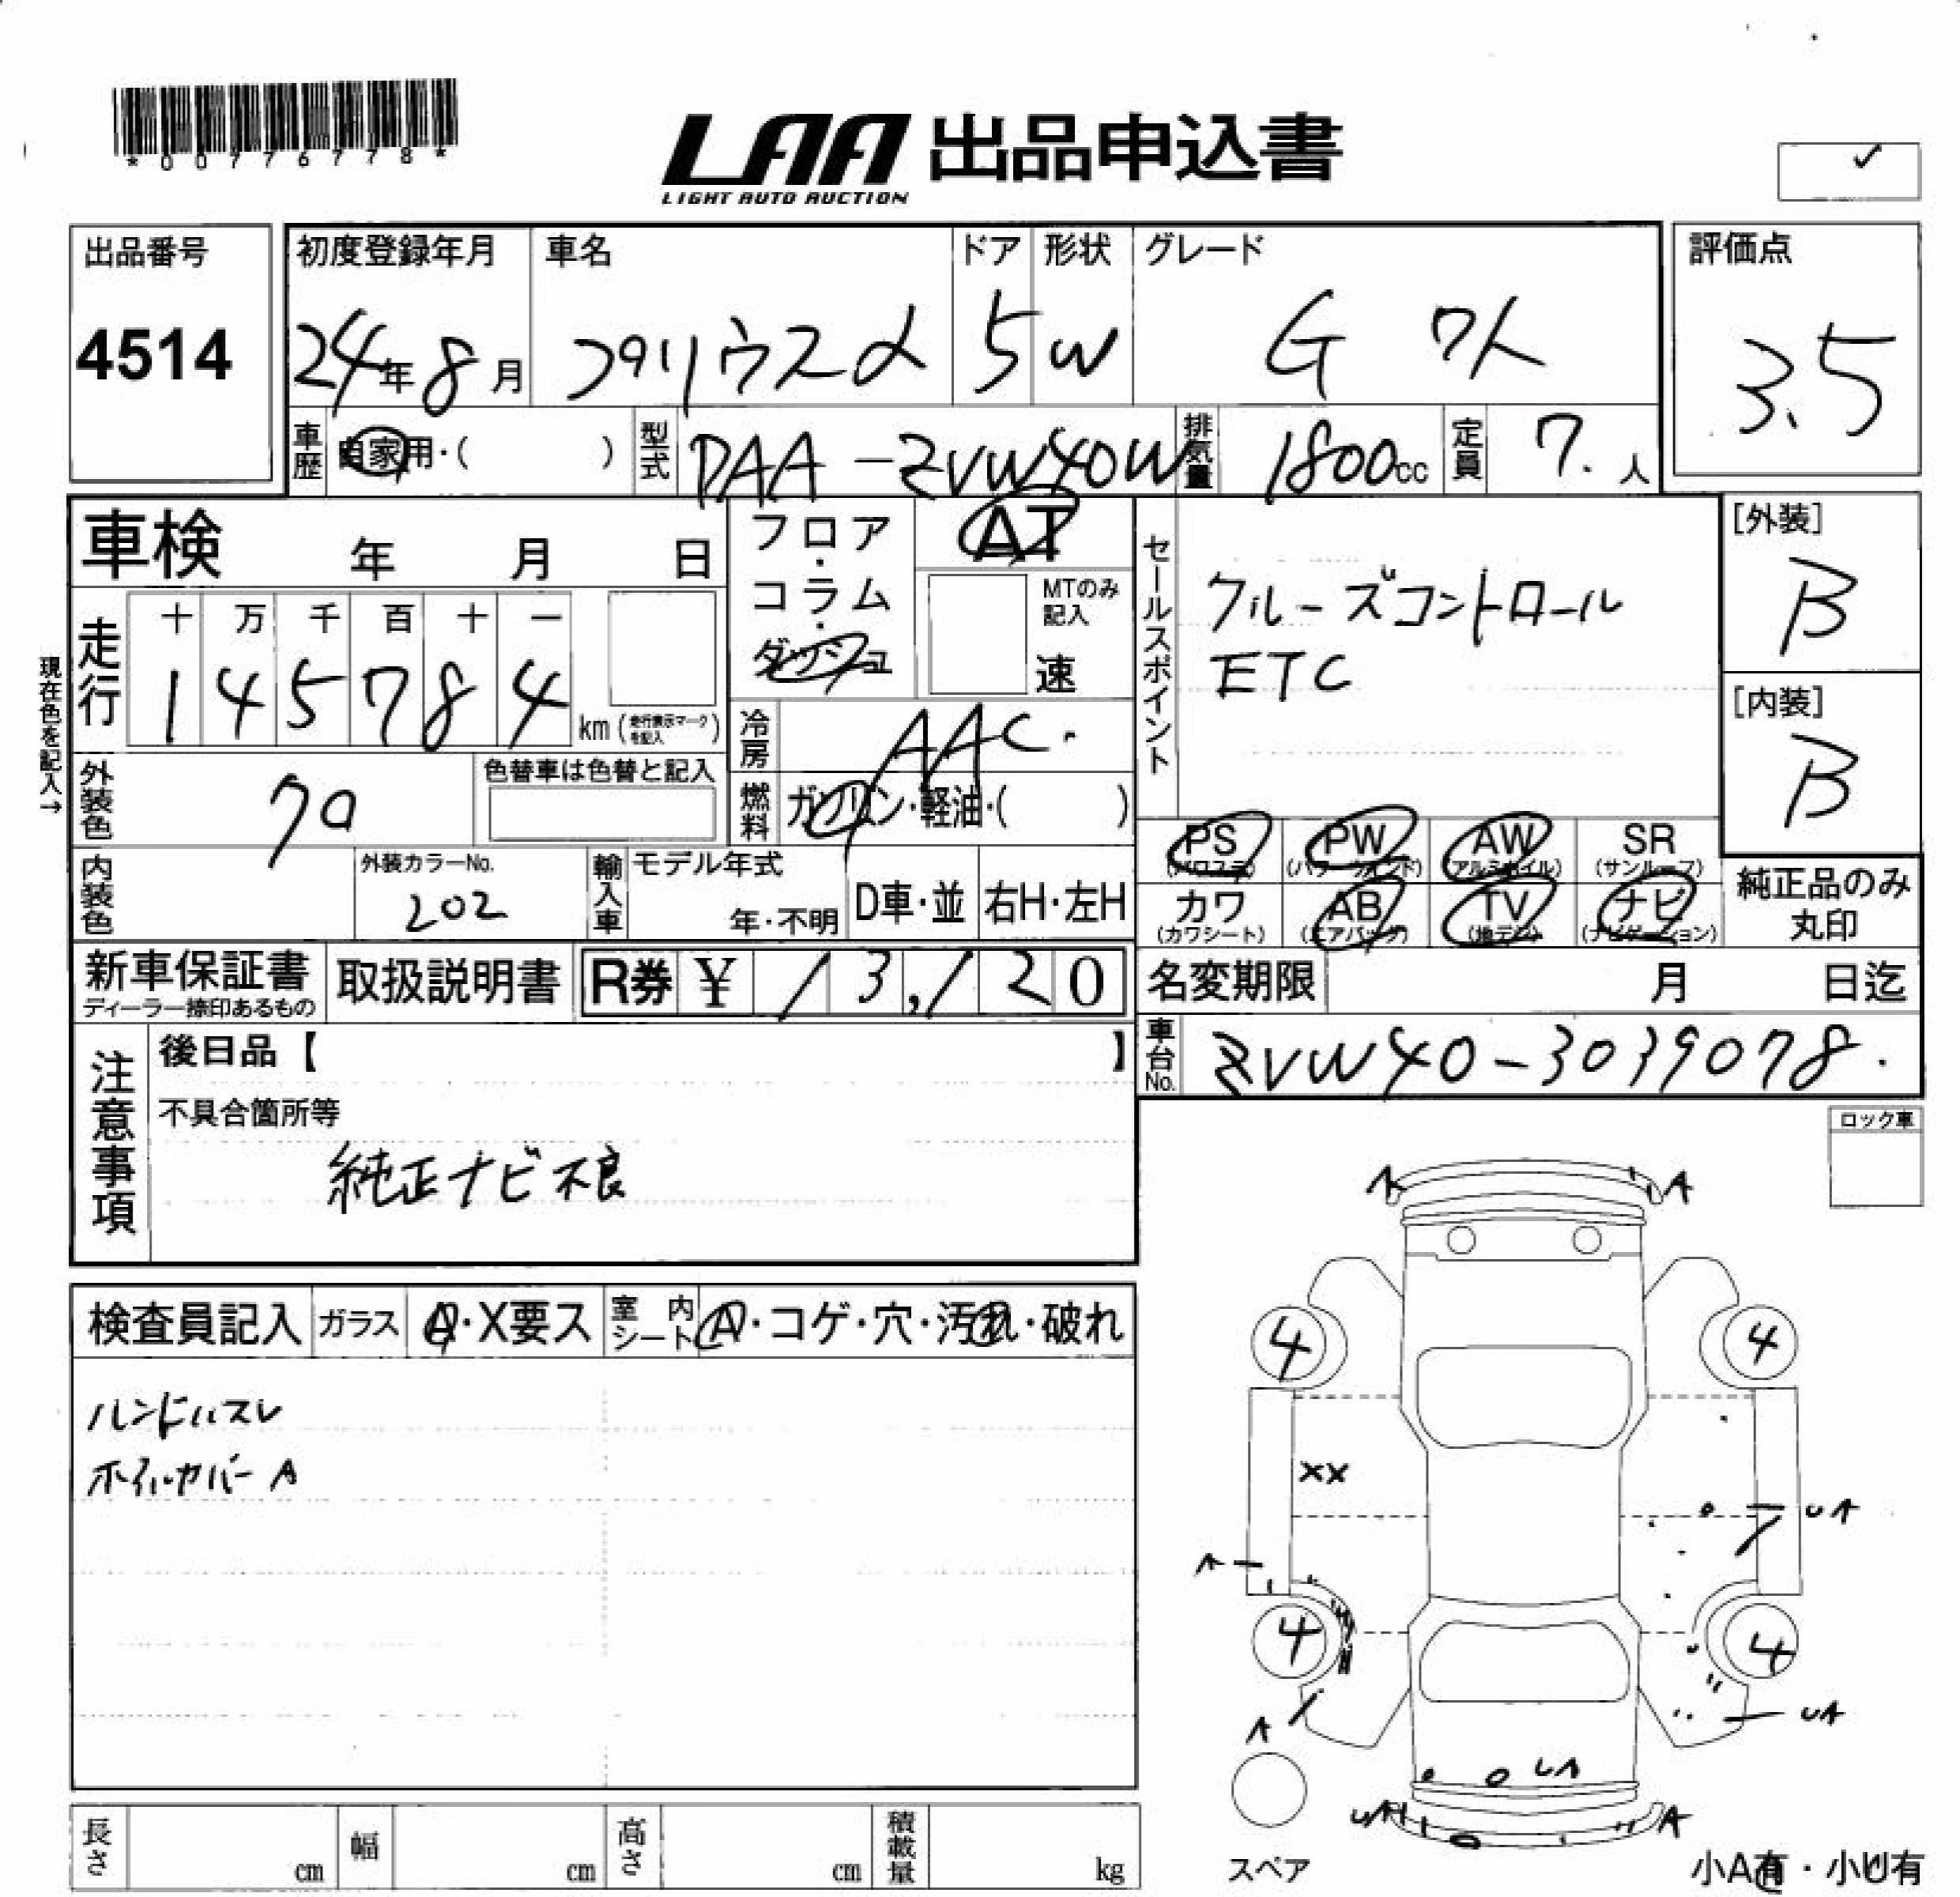 *00776778*
LAA 出品申込書
LIGHT AUTO AUCTION
✓
出品番号
4514
初度登録年月
24年8月
車名
プリウスα
ドア
5
形状
W
グレード
G 7人
評価点
3.5
車歴 自家用・( )
型式 DAA-ZVW40W
排気量 1800cc
定員 7. 人
車検 年 月 日
フロア・コラム・ダッシュ
AT
MTのみ記入
速
走行
十 万 千 百 十 一
1 4 5 7 8 4
km (走行表示マークを記入)
現在色を記入→
冷房 AAC.
燃料 ガソリン・軽油・( )
外装色 クロ
色替車は色替と記入
内装色
外装カラーNo.
202
輸入車
モデル年式
年・不明
D車・並
右H・左H
セールスポイント
クルーズコントロール
ETC
[外装]
B
[内装]
B
PS (パワステ)
PW (パワーウインド)
AW (アルミホイル)
SR (サンルーフ)
カワ (カワシート)
AB (エアバッグ)
TV (地デジ)
ナビ (ナビゲーション)
純正品のみ
丸印
新車保証書
ディーラー捺印あるもの
取扱説明書
R券 ¥ 13,120
名変期限 月 日迄
車台No. ZVW40-3039078.
注意事項
後日品【 】
不具合箇所等
純正ナビ不良
ロック車
検査員記入
ガラス A・X要ス
室内シート A・コゲ・穴・汚れ・破れ
ハンドルスレ
ホイルカバー A
A A
4 4
XX
UA
A
4 4
A
UA
UA
UA A
スペア
小A有・小U有
長さ cm
幅 cm
高さ cm
積載量 kg